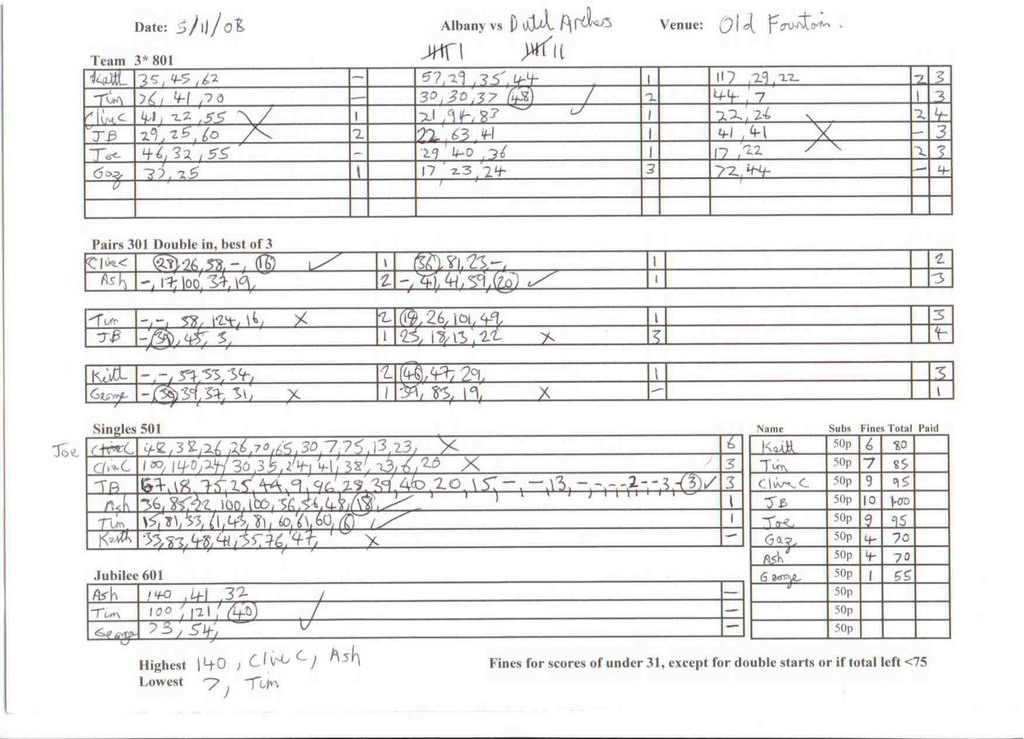 Date: 5/11/08 Albany vs Dutch Archers Venue: Old Fountain.
Team 3* 801
Keith 35, 45, 62 – 57, 29, 35, 44 1 117, 29, 22 2 3
Tim 76, 41, 70 – 30, 30, 37 (48) 2 44, 7 1 3
Clive C 41, 22, 55 1 21, 94, 83 1 22, 26 2 4
JB 29, 25, 60 2 22, 63, 41 1 41, 41 – 3
Joe 46, 32, 55 – 29, 40, 36 1 17, 22 2 3
Gaz 37, 25 1 17, 23, 24 3 72, 44 – 4
Pairs 301 Double in, best of 3
Clive C (28), 26, 58, –, (16) ✓ 1 (36), 81, 23, –, 1 2
Ash –, 17, 100, 37, 19, 2 –, 41, 41, 59, (20) ✓ 1 3
Tim –, –, 58, 124, 16, X 2 (18), 26, 101, 49, 1 3
JB – (39), 45, 3, 1 25, 18, 13, 22 X 3 4
Keith –, –, 57, 33, 34, 2 (46), 47, 29, 1 3
George – (30), 39, 37, 31, X 1 39, 83, 19, X – 1
Singles 501
Joe 48, 38, 26, 26, 70, 65, 30, 7, 75, 13, 23, X 6
Clive C 100, 140, 24, 30, 35, 24, 41, 38, 23, 6, 20 X 3
JB 67, 18, 75, 25, 44, 9, 96, 28, 39, 40, 20, 15, –, –, 13, –, –, –, –2, –, –3, –(3) ✓ 3
Ash 36, 85, 22, 100, 100, 36, 56, 48, (18), ✓ 1
Tim 15, 81, 33, 61, 45, 81, 60, 61, 60, (6) ✓ 1
Keith 33, 83, 48, 41, 35, 76, 47, X –
Name Subs Fines Total Paid
Keith 50p 6 80
Tim 50p 7 85
Clive C 50p 9 95
JB 50p 10 100
Joe 50p 9 95
Gaz 50p 4 70
Ash 50p 4 70
George 50p 1 55
50p
50p
50p
Jubilee 601
Ash 140, 41, 32 –
Tim 100, 121, (40) ✓ –
George 73, 54, –
Highest 140, Clive C, Ash
Lowest 7, Tim
Fines for scores of under 31, except for double starts or if total left <75